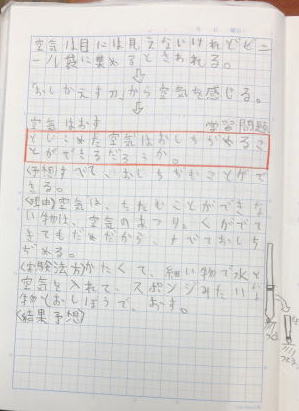 空気は目には見えないけれどビニ
ール袋に集めるとさわれる。
⇩
「おしかえす力」から空気を感じる。
⇩
空気はおす 学習問題
とじこめた空気はおしちぢめるこ
とができるだろうか。
〈予想〉すべて、おしちぢむことがで
きる。
〈理由〉空気は、もたもことができな
い物は、空気のあつ
きてもだめだから、すべておしち
ぢめる。
〈実験方法〉かたくて、細い物で水と
空気を入れて、スポンジみたいな
物とおしぼうで、おす。
〈結果予想〉